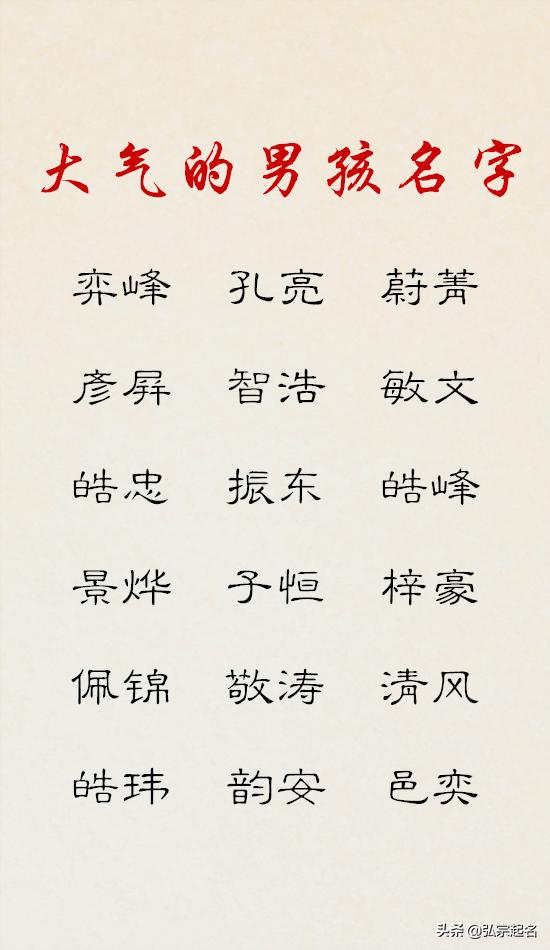 大气的男孩名字
弈峰 孔亮 蔚菁
彦屏 智浩 敏文
皓忠 振东 皓峰
景烨 子恒 梓豪
佩锦 敬涛 清风
皓玮 韵安 邑奕
头条 @弘宗起名